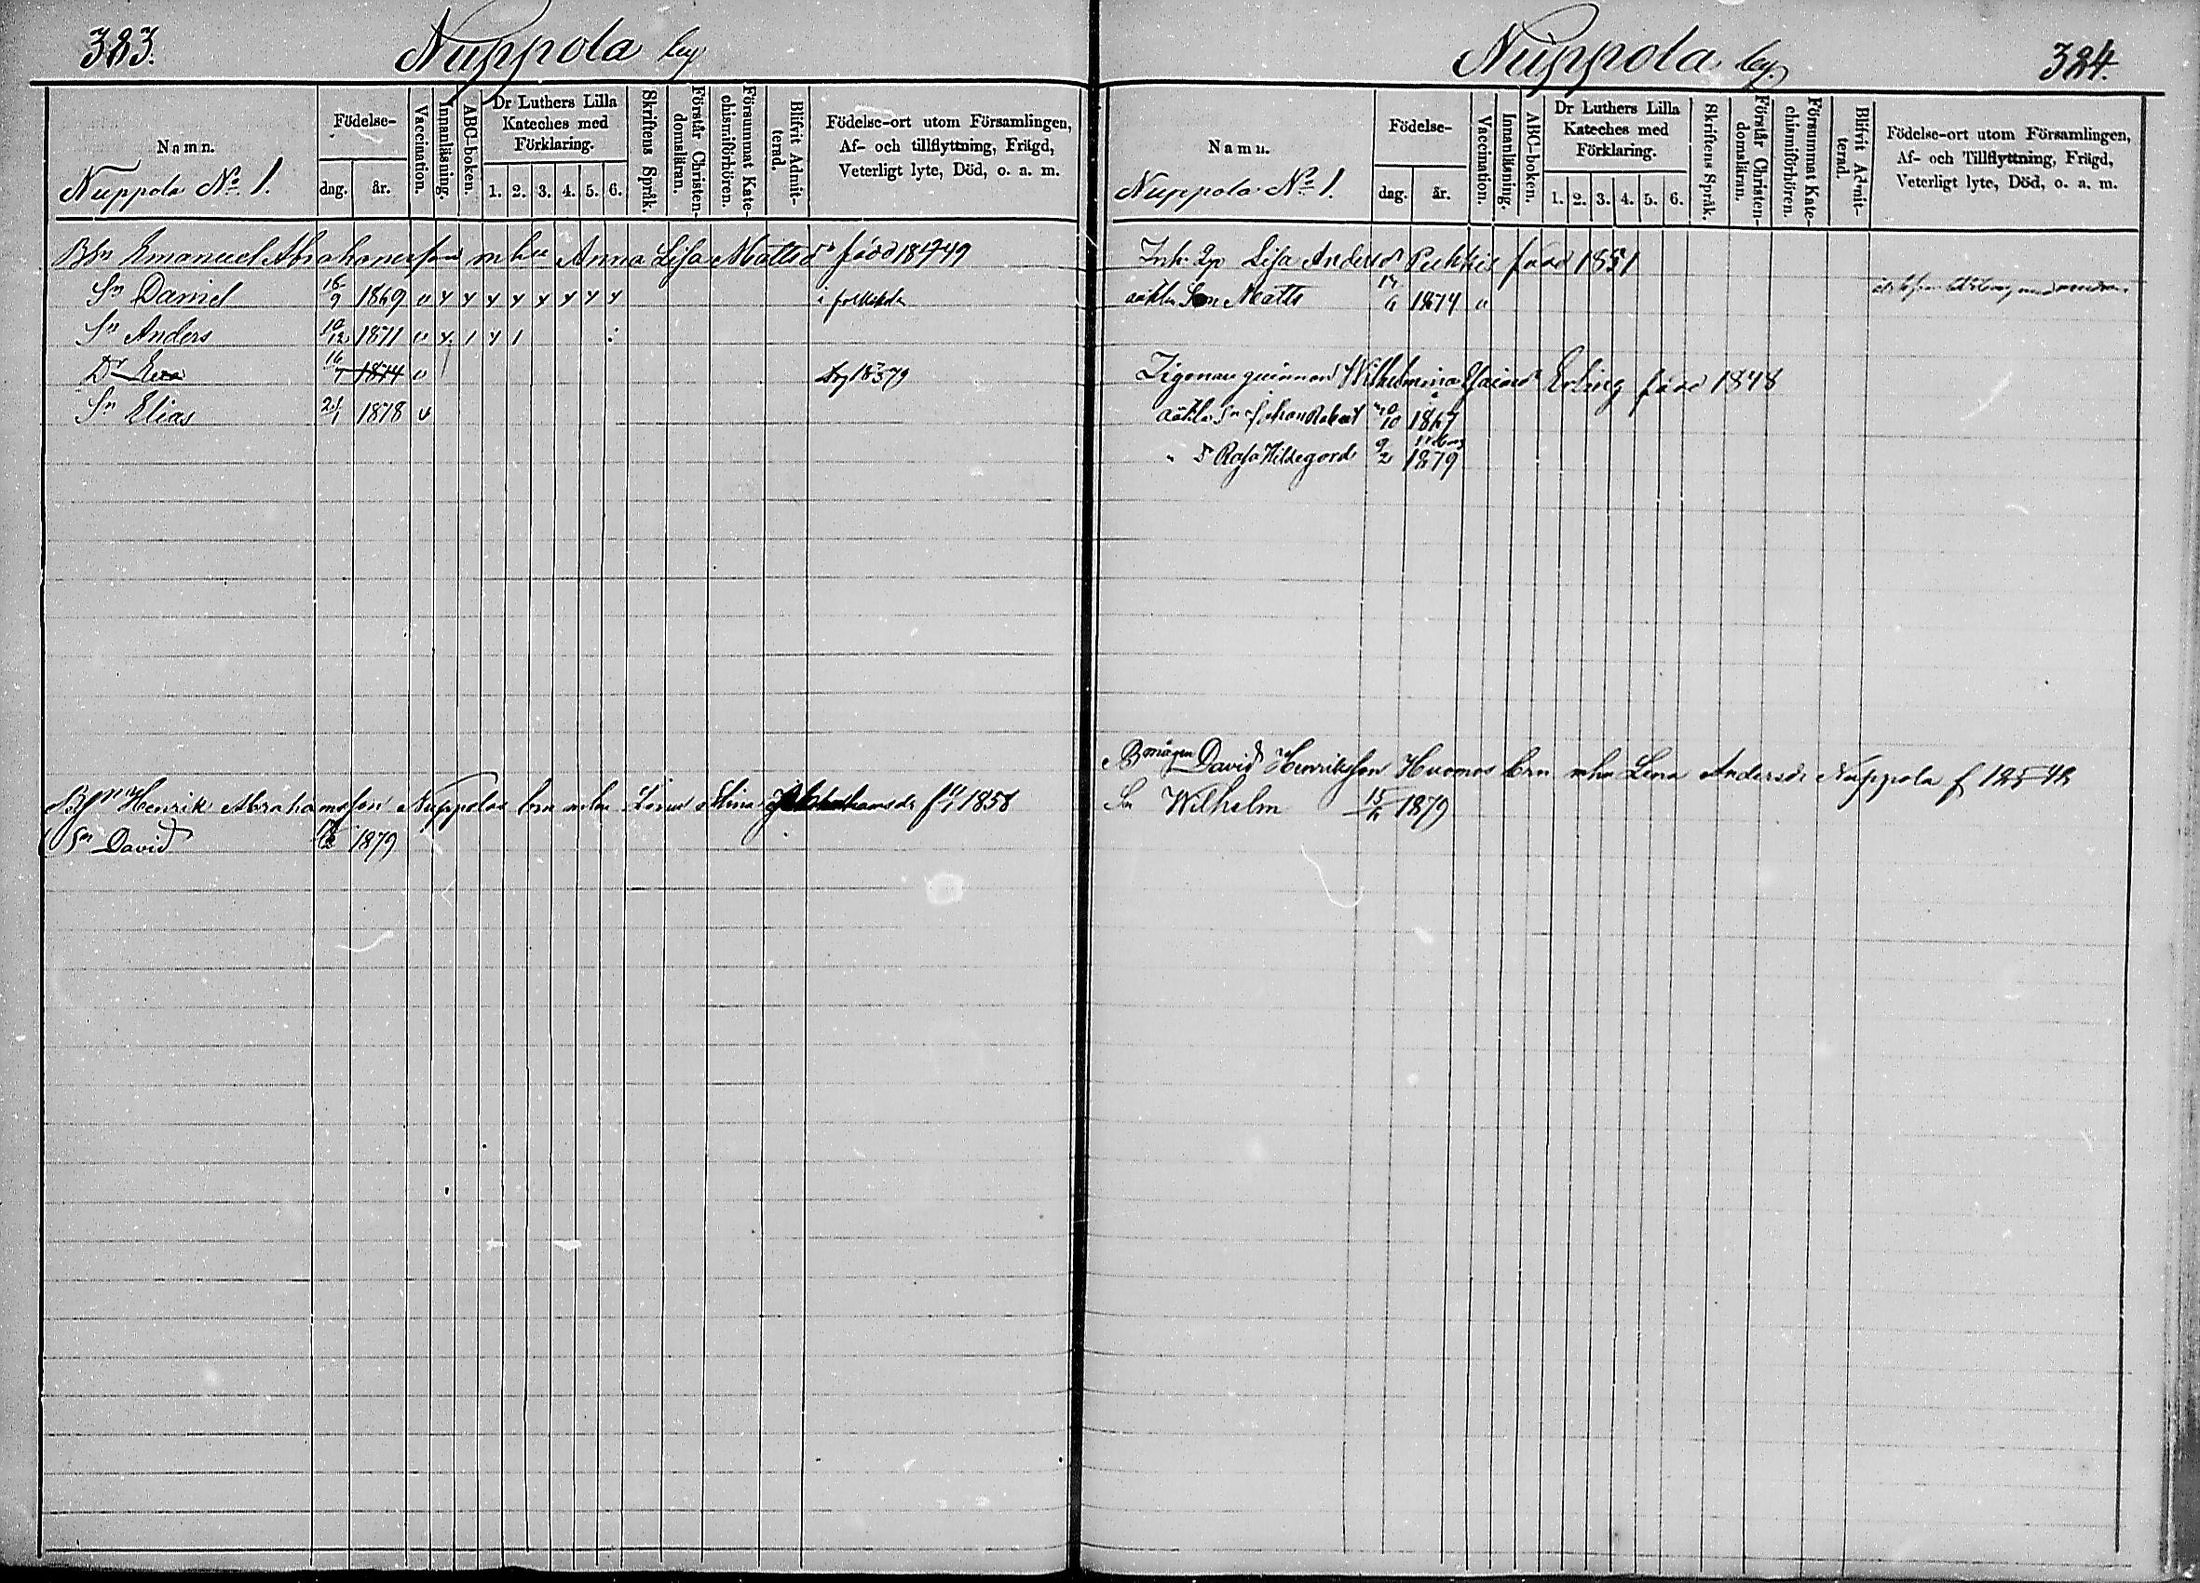 323.
Nuppola by
Namn.
Nuppola No 1.
Födelse-
dag. år.
Vaccination.
Innanläsning.
ABC-boken.
Dr Luthers Lilla
Kateches med
Förklaring.
1. 2. 3. 4. 5. 6.
Skriftens Språk.
Förstår Christen-
domsläran.
Försummat Kate-
chismiförhören.
Blifvit Admit-
terad.
Födelse-ort utom Församlingen,
Af- och tillflyttning, Frägd,
Veterligt lyte, Död, o. a. m.
Bsn Emanuel Abrahamsson m hu Anna Lisa Mattsdr född 1849
Sn Daniel 9 1869 v y y y y y y y y i folkskola
Sn Anders 10/12 1871 v y 1 y 1
Dr Eva 16/7 1874 v
Sn Elias 21/1 1878 v
Henrik Abrahamsson Nuppola brn m hu f 1858
Sn David 1879
Nuppola by.
324.
Namn.
Nuppola No 1.
Födelse-
dag. år.
Vaccination.
Innanläsning.
ABC-boken.
Dr Luthers Lilla
Kateches med
Förklaring.
1. 2. 3. 4. 5. 6.
Skriftens Språk.
Förstår Christen-
domsläran.
Försummat Kate-
chismiförhören.
Blifvit Admit-
terad.
Födelse-ort utom Församlingen,
Af- och Tillflyttning, Frägd,
Veterligt lyte, Död, o. a. m.
Inh. Lisa Andersdr född 1851
oäkta Son Matts 17/6 1874 v
Zigenare qvinnan Wilhelmina Erling född 1848
oäkta Sn Johan Robert 1867
D Rosa Hildegard 9/2 1879
Bmågen David Henriksson brn m hu Lena Andersdr Nuppola f
Sn Wilhelm 15/6 1879